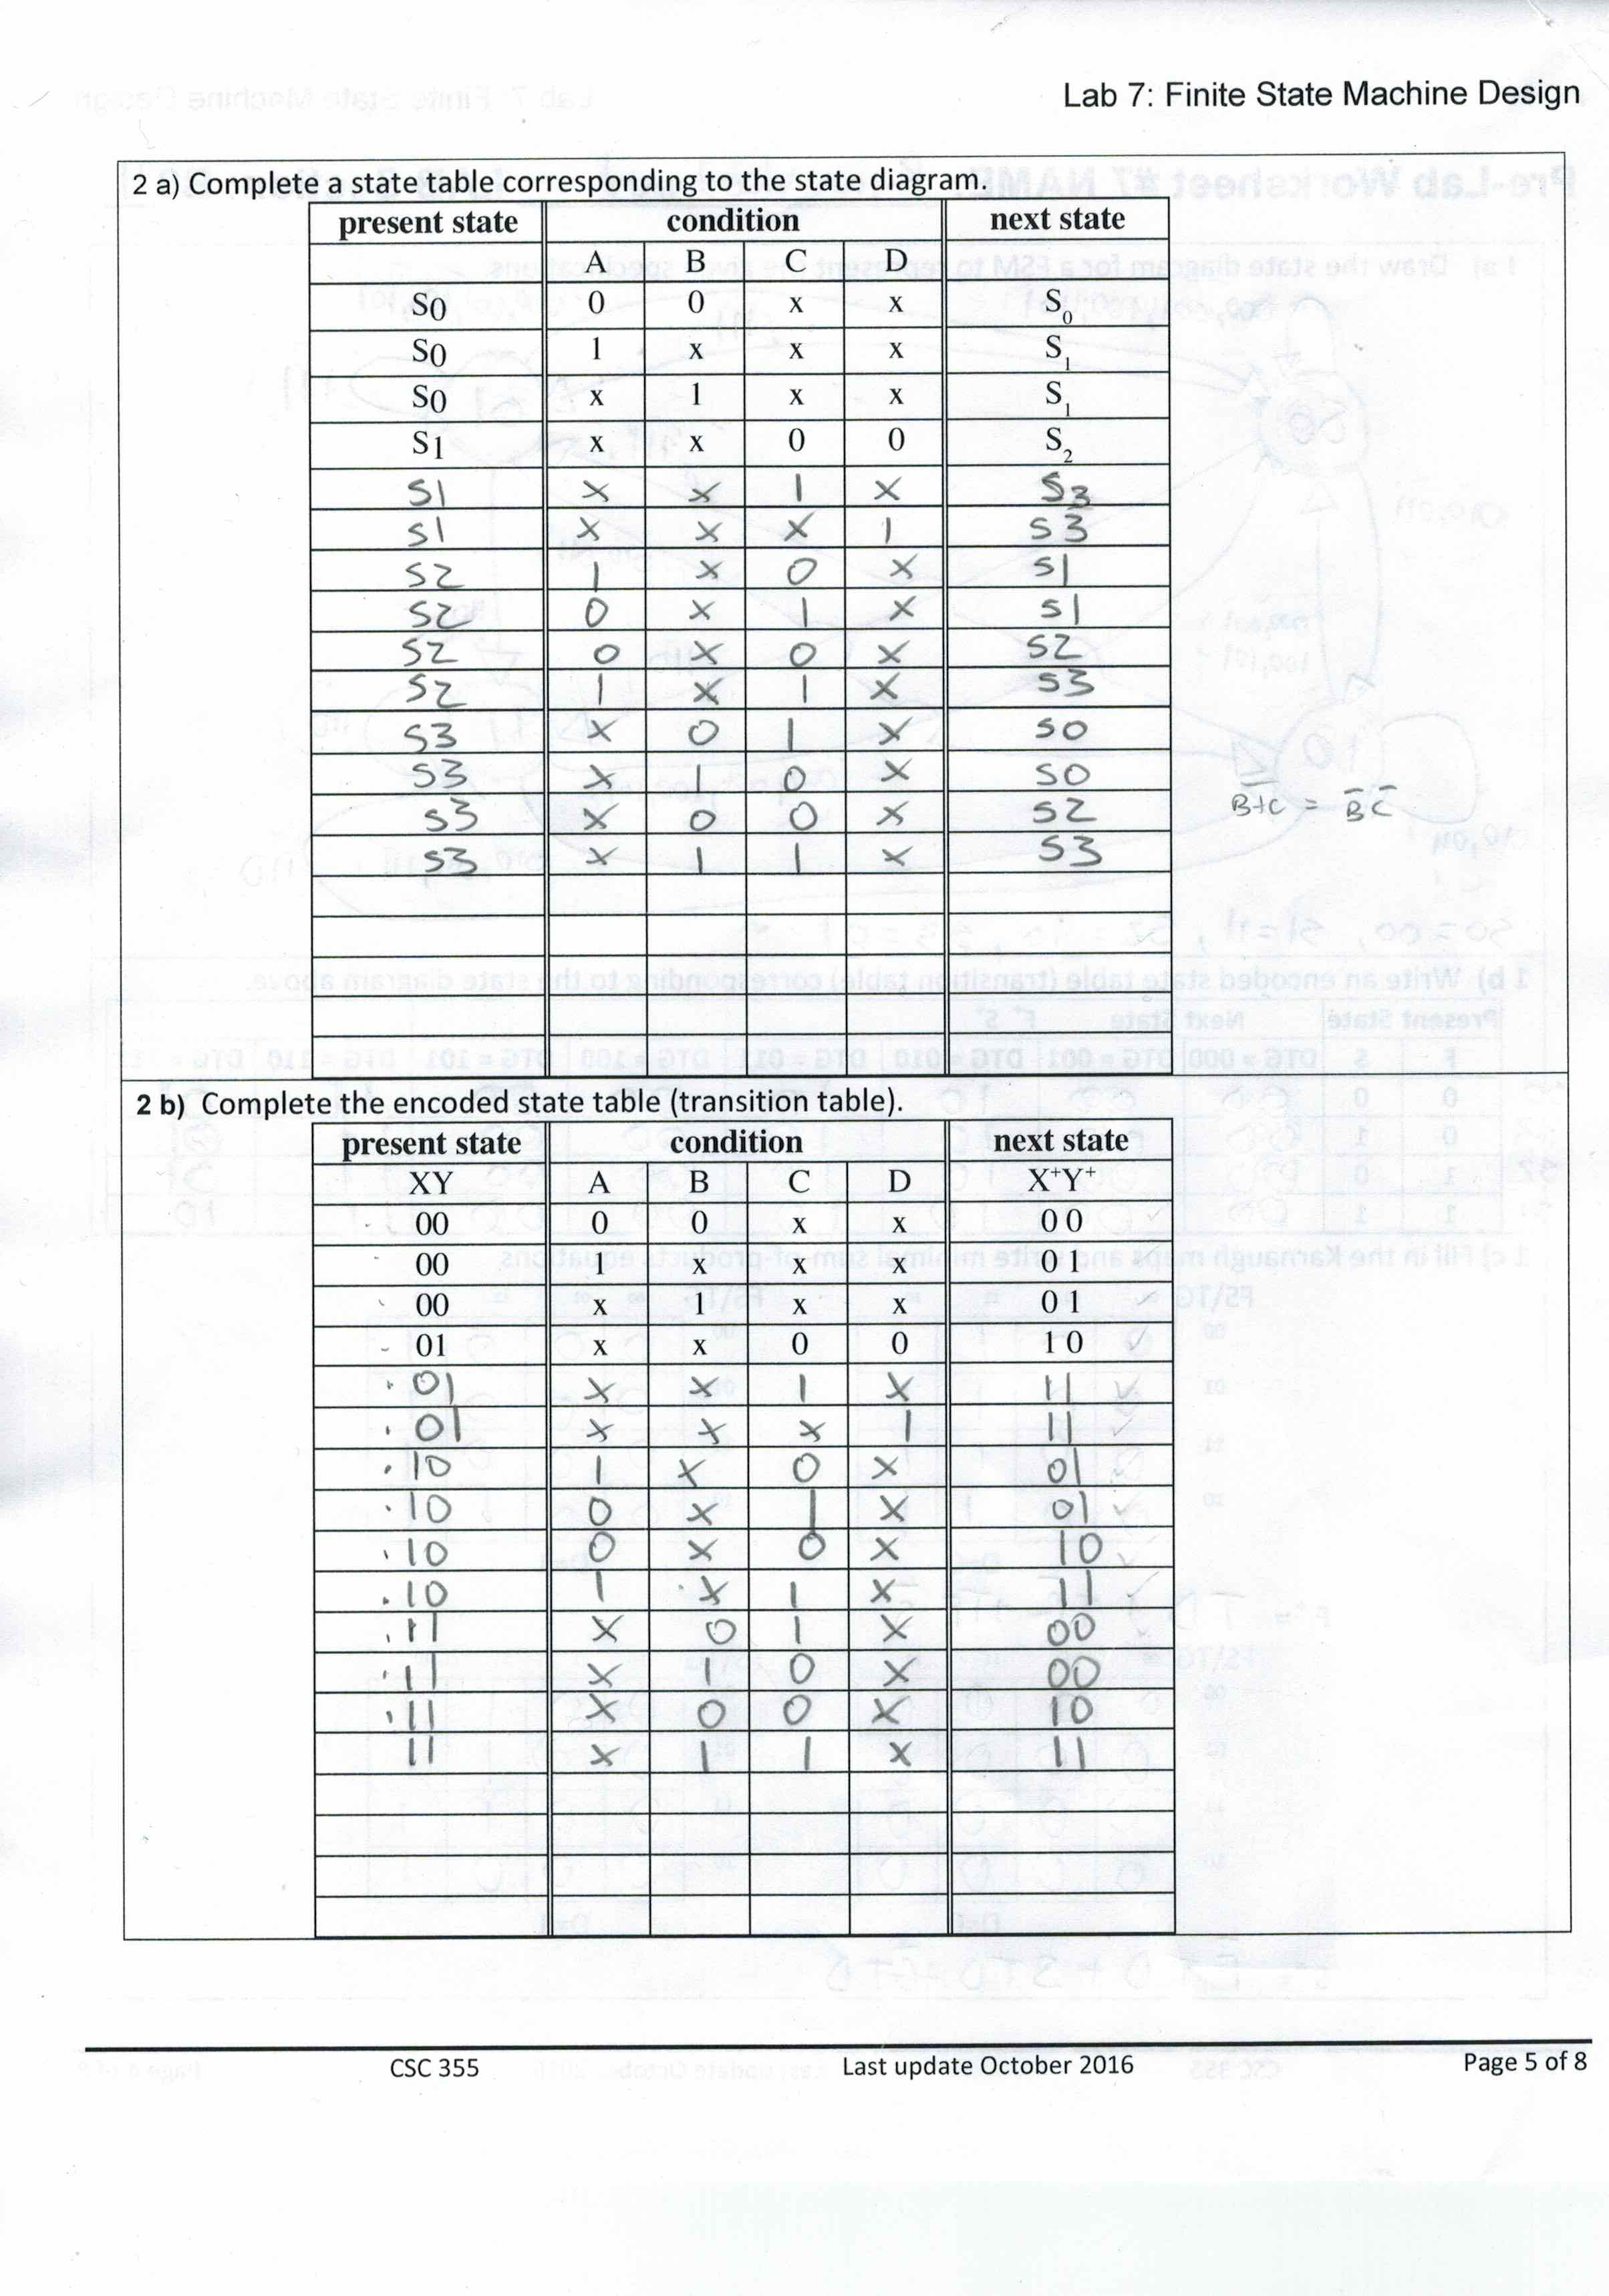 Lab 7: Finite State Machine Design
2 a) Complete a state table corresponding to the state diagram.
present state condition next state
A B C D
S0 0 0 x x S0
S0 1 x x x S1
S0 x 1 x x S1
S1 x x 0 0 S2
S1 X X 1 X S3
S1 X X X 1 S3
S2 1 X 0 X S1
S2 0 X 1 X S1
S2 0 X 0 X S2
S2 1 X 1 X S3
S3 X 0 1 X S0
S3 X 1 0 X S0
S3 X 0 0 X S2
B+C = B̅ C̅
S3 X 1 1 X S3
2 b) Complete the encoded state table (transition table).
present state condition next state
XY A B C D X⁺Y⁺
00 0 0 x x 0 0
00 1 x x x 0 1
00 x 1 x x 0 1
01 x x 0 0 1 0
01 X X 1 X 11
01 X X X 1 11
10 1 X 0 X 01
10 0 X 1 X 01
10 0 X 0 X 10
10 1 X 1 X 11
11 X 0 1 X 00
11 X 1 0 X 00
11 X 0 0 X 10
11 X 1 1 X 11
CSC 355 Last update October 2016 Page 5 of 8